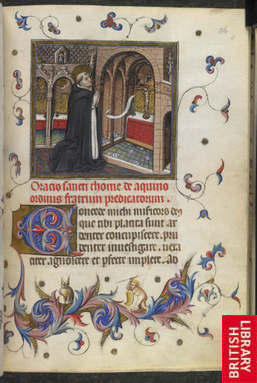 Oracio sancti thome de aquino
ordinis fratrum predicatorum.
Concede michi misericors deus
que tibi placita sunt ar
denter concupiscere. pru
denter inuestigare. vera
citer agnoscere et perfecte implere. Ad
BRITISH
LIBRARY